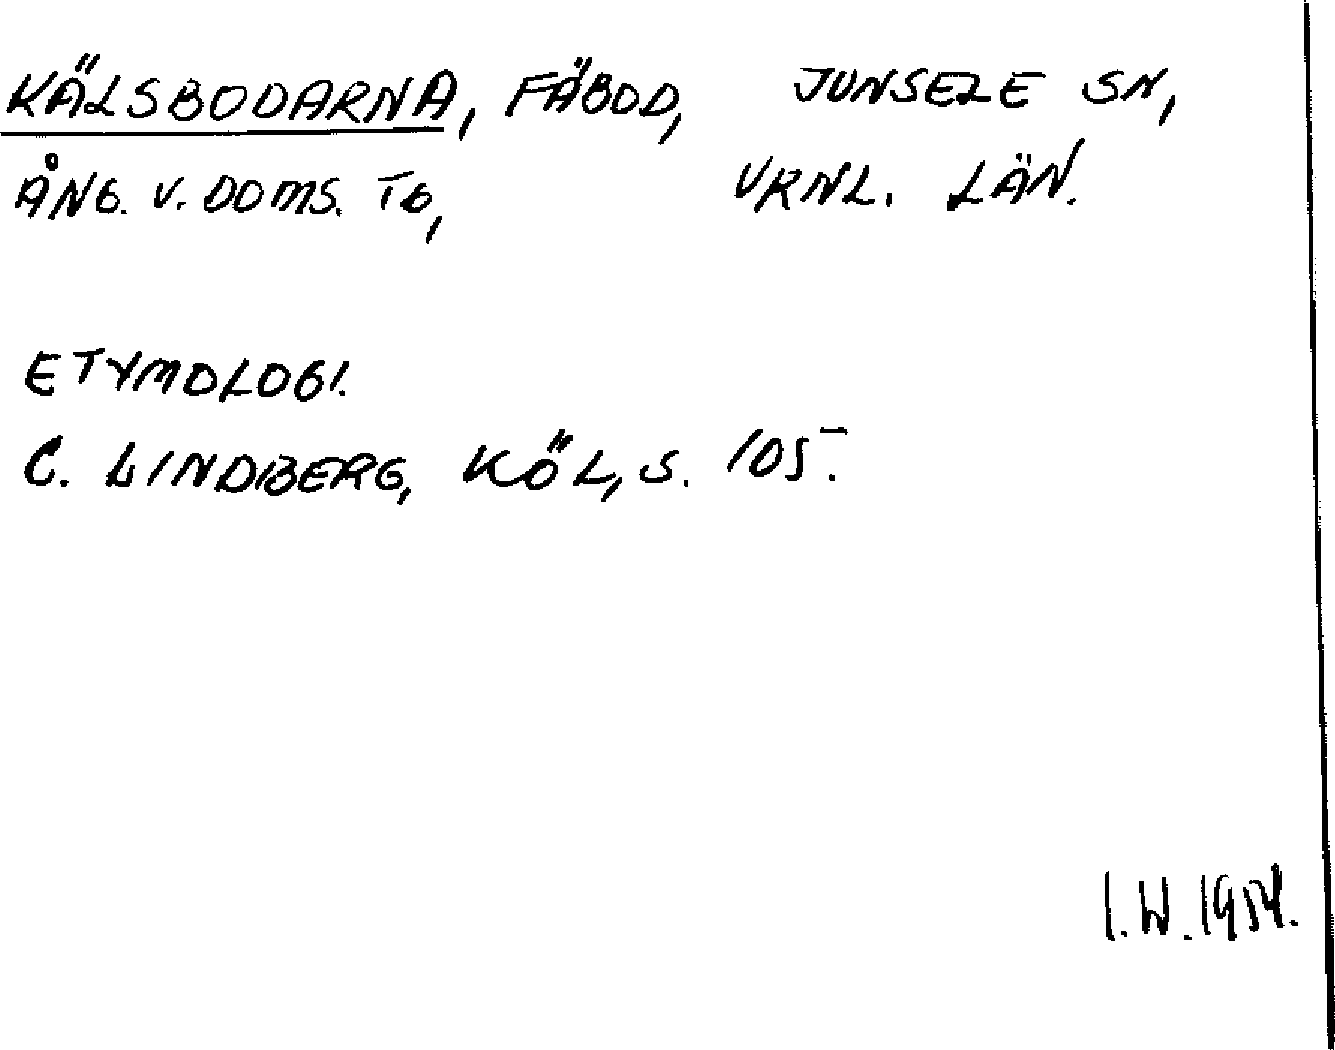 KÄLSBODARNA, FÄBOD, JUNSELE SN,
ÅNG. V. DOMS. TG, VRNL. LÄN.
ETYMOLOGI.
C. LINDBERG, KÖL, S. 105.
I.W. 1954.